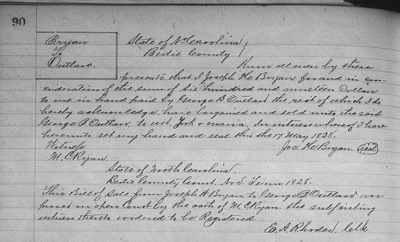 90
Bryan
to
Outlaw
State of No Carolina
Bertie County
Know all men by these
presents that I Joseph H. Bryan for and in con
sideration of the sum of Six hundred and nineteen Dollars
to me in hand paid by George B Outlaw the rect of which I do
hereby acknowledge have bargained and sold unto the said
George B Outlaw, to wit, In witness whereof I have
hereunto set my hand and seal this the 17 May 1828.
Witness
Jos. H. Bryan (seal)
W. C Ryan.
State of North Carolina.
Bertie County Court. Term 1828.
This Bill of Sale from Joseph H Bryan to George B Outlaw was
proved in open Court by the oath of W. C Ryan the subscribing
witness thereto & ordered to be Registered.
E. A. Rhodes Clk